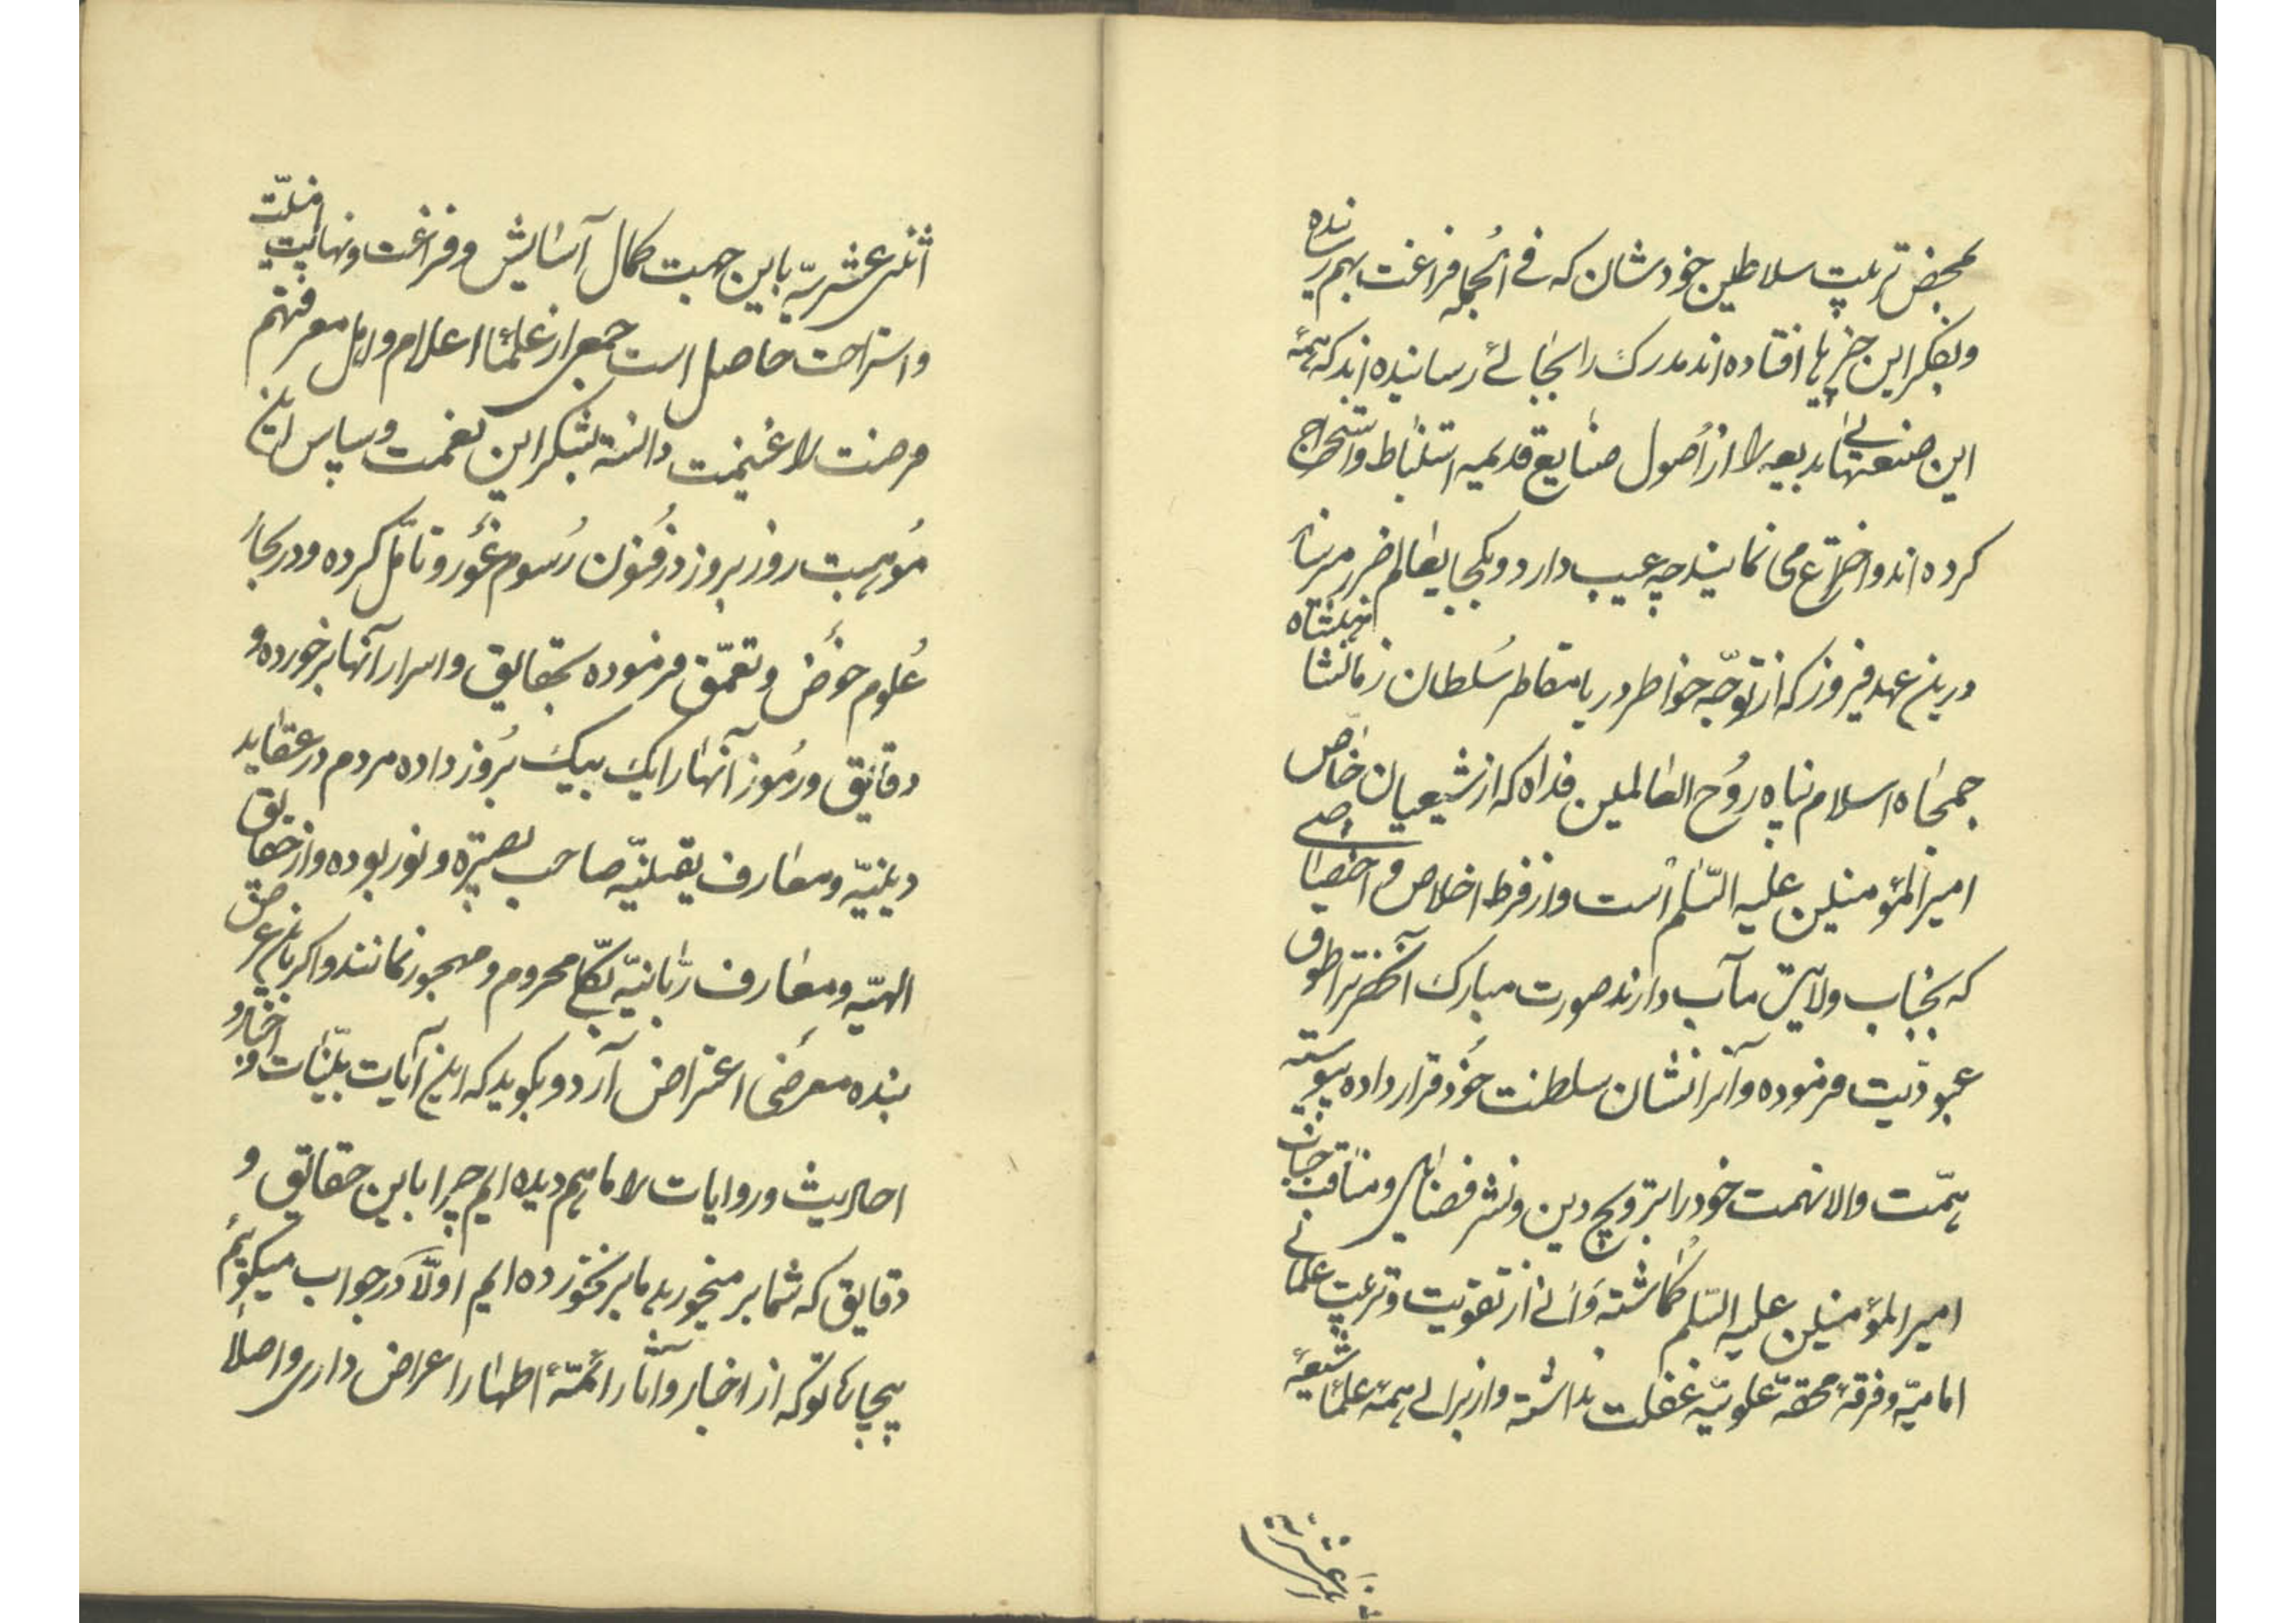 بمحض تربیت سلاطین خودشان که فی الجمله فراغت بهم رسانده
وبفکر این چیزها افتاده اند مدرک را بجائے رسانیده اند که همهٔ
این صنعتهای بدیعه را از اُصول صنایع قدیمیه استنباط واستخراج
کرده اند واختراع می نمایند چه عیب دارد وبکجا بعالم ضرر میرساند
درین عهد فیروز که از توجّه خواطر دریا مقاطر سُلطان زمان شاهنشاه
جمجاه اسلام پناه رُوح العالمین فداه که از شیعیان خاصّ
امیر المؤمنین علیه السّلم است واز فرط اخلاص و اختصاصی
که بجناب ولایتمآب دارند صورت مبارک آنحضرترا طوق
عبودّیت فرموده وآنرا نشان سلطنت خود قرار داده پیوسته
همّت والا نهمت خود را بترویج دین ونشر فضایل ومناقب جناب
امیر المؤمنین علیه السّلم گماشته وَآنی از تقویت وترغیب علمای
امامیّه وفرقهٔ محقّه علویّه غفلت نداشته واز برای همهٔ علماء شیعهٔ
اثنی عشریّه
اثنی عشریّه باین جهت کمال آسایش وفراغت ونهایت امنیّت
واستراحت حاصل است جمعی از علماء اعلام واهل معرفت هم
فرصت را غنیمت دانسته بشکر این نعمت وسپاس این
مُوهبت روز بروز در فنون رُسوم غَور وتأمّل کرده ودر بحار
عُلوم خوض وتعمّق فرموده بحقایق واسرار آنها برخورده و
دقایق ورُموز آنها را یک بیک بُروز داده مردم در عقاید
دینیّه ومعارف یقینیّه صاحب بصیرة ونور بوده واز حقایق
الهیّه ومعارف ربّانیّه بکلّی محروم ومهجور نمانند واکر باین عرایض
بنده معرضی اعتراض آرد وبکوید که این آیات بیّنات واخبار و
احادیث وروایات را ما هم دیده ایم چرا باین حقایق و
دقایق که شما بر میخورید ما بر نخورده ایم اولّاً در جواب میکوئیم
بیجا که از اخبار وآثار ائمّهٔ اطهار اعراض داری واصلاً